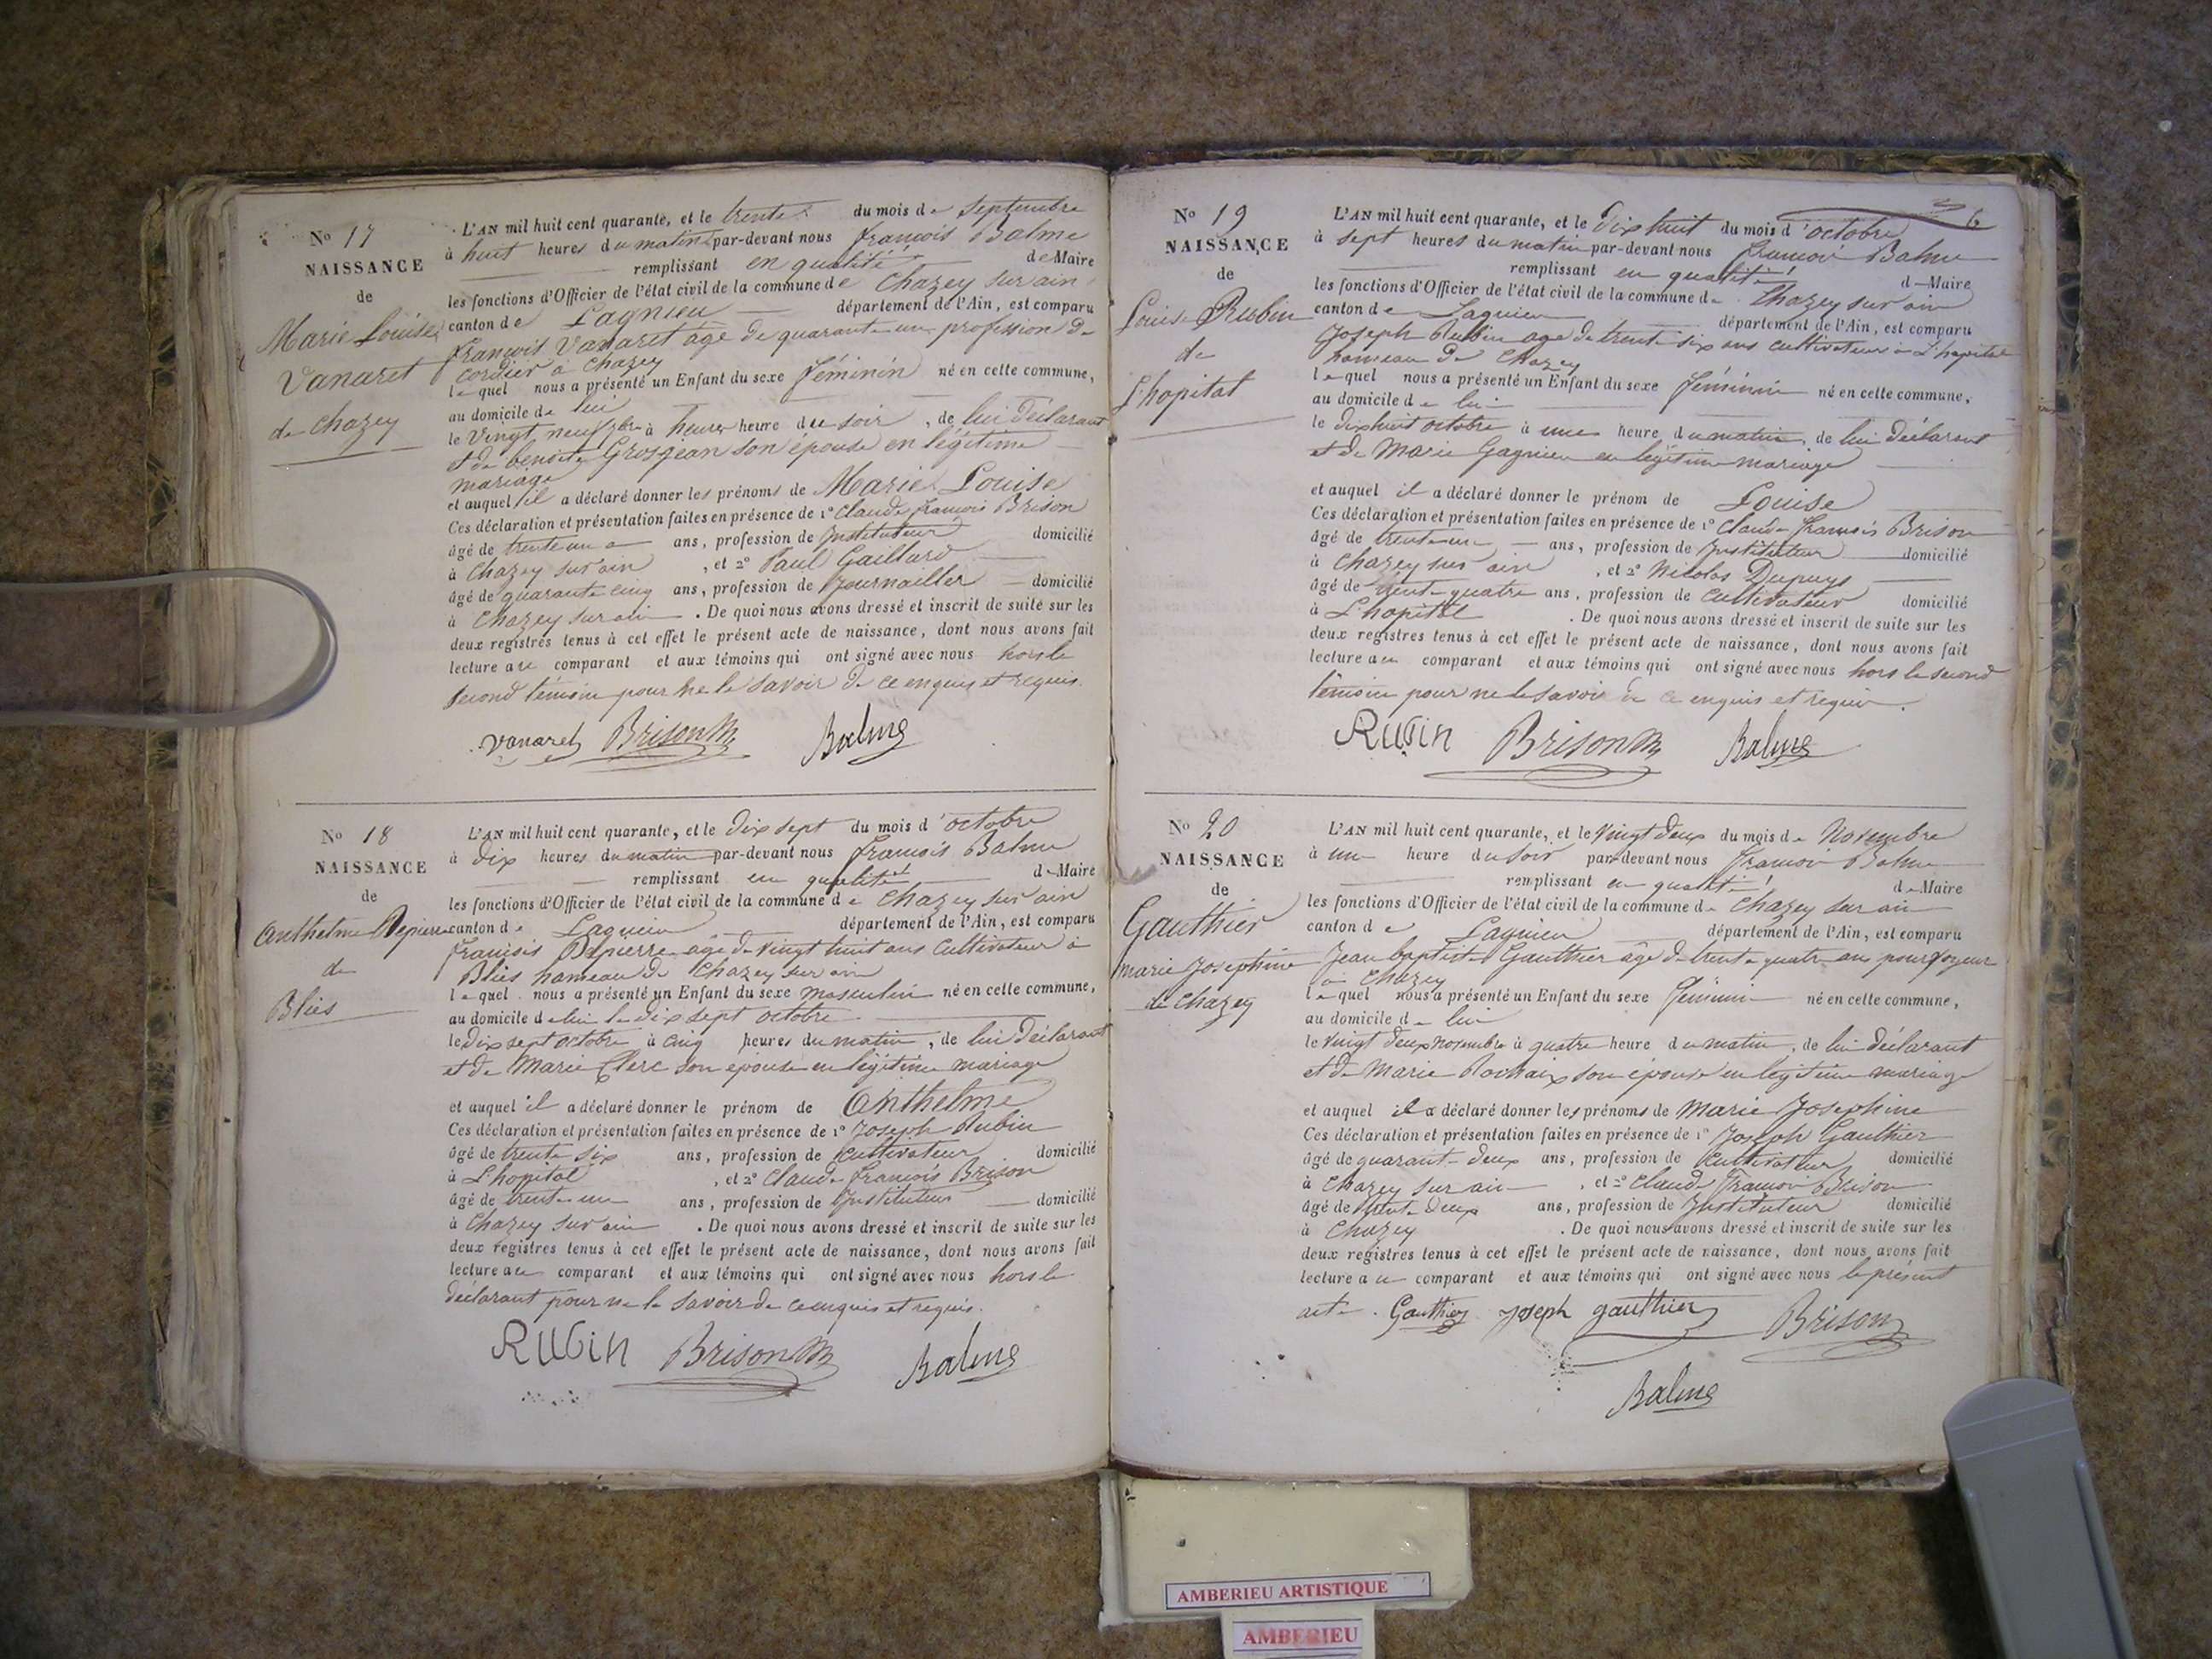 No 17
NAISSANCE
de
Marie Louise
Vanaret
de Chazey
L'AN mil huit cent quarante, et le trente du mois de Septembre
à huit heures du matin par-devant nous françois Balme
remplissant en qualité de Maire
les fonctions d'Officier de l'état civil de la commune de Chazey sur ain
canton de Lagnieu département de l'Ain, est comparu
françois Vanaret âgé de quarante un profession de
cordier à Chazey
lequel nous a présenté un Enfant du sexe féminin né en cette commune,
au domicile de lui
le Vingt neuf 7bre à heure du soir, de lui déclarant
et de benoite Grosjean son épouse en légitime
mariage
et auquel il a déclaré donner les prénoms de Marie Louise
Ces déclaration et présentation faites en présence de 1° Claude françois Brison
âgé de trente un ans, profession de Instituteur domicilié
à Chazey sur ain, et 2° Paul Gaillard
âgé de quarante cinq ans, profession de Journallier domicilié
à Chazey sur ain. De quoi nous avons dressé et inscrit de suite sur les
deux registres tenus à cet effet le présent acte de naissance, dont nous avons fait
lecture au comparant et aux témoins qui ont signé avec nous hors le
second témoin pour ne le savoir de ce enquis et requis.
Vanaret Brison Balme
No 18
NAISSANCE
de
Anthelme Depierre
de
Blies
L'AN mil huit cent quarante, et le dix sept du mois d'octobre
à dix heures du matin par-devant nous françois Balme
remplissant en qualité de Maire
les fonctions d'Officier de l'état civil de la commune de Chazey sur ain
canton de Lagnieu département de l'Ain, est comparu
françois Depierre âgé de vingt huit ans Cultivateur à
Blies hameau de Chazey sur ain
lequel nous a présenté un Enfant du sexe masculin né en cette commune,
au domicile de lui le dix sept octobre
le dix sept octobre à cinq heures du matin, de lui déclarant
et de Marie Clerc son épouse en légitime mariage
et auquel il a déclaré donner le prénom de Anthelme
Ces déclaration et présentation faites en présence de 1° Joseph Rubin
âgé de trente six ans, profession de Cultivateur domicilié
à L'hopital, et 2° Claude françois Brison
âgé de trente un ans, profession de Instituteur domicilié
à Chazey sur ain. De quoi nous avons dressé et inscrit de suite sur les
deux registres tenus à cet effet le présent acte de naissance, dont nous avons fait
lecture au comparant et aux témoins qui ont signé avec nous hors le
déclarant pour ne le savoir de ce enquis et requis.
RUbin Brison Balme
6
No 19
NAISSANCE
de
Louise Rubin
de
L'hopital
L'AN mil huit cent quarante, et le Dix huit du mois d'octobre
à sept heures du matin par-devant nous françois Balme
remplissant en qualité de Maire
les fonctions d'Officier de l'état civil de la commune de Chazey sur ain
canton de Lagnieu département de l'Ain, est comparu
Joseph Rubin age de trente six ans cultivateur à L'hopital
hameau de Chazey
lequel nous a présenté un Enfant du sexe féminin né en cette commune,
au domicile de lui
le dix huit octobre à une heure du matin, de lui déclarant
et de Marie Gagnieu en légitime mariage
et auquel il a déclaré donner le prénom de Louise
Ces déclaration et présentation faites en présence de 1° Claude françois Brison
âgé de trente un ans, profession de Instituteur domicilié
à Chazey sur ain, et 2° Nicolas Dupuys
âgé de trente quatre ans, profession de Cultivateur domicilié
à L'hopital. De quoi nous avons dressé et inscrit de suite sur les
deux registres tenus à cet effet le présent acte de naissance, dont nous avons fait
lecture au comparant et aux témoins qui ont signé avec nous hors le second
témoin pour ne le savoir de ce enquis et requis.
RUbin Brison Balme
No 20
NAISSANCE
de
Gauthier
marie Josephine
de Chazey
L'AN mil huit cent quarante, et le Vingt deux du mois de Novembre
à une heure du soir par-devant nous françois Balme
remplissant en qualité de Maire
les fonctions d'Officier de l'état civil de la commune de Chazey sur ain
canton de Lagnieu département de l'Ain, est comparu
Jean baptiste Gauthier âgé de trente quatre ans
à Chazey
lequel nous a présenté un Enfant du sexe féminin né en cette commune,
au domicile de lui
le vingt deux novembre à quatre heure du matin, de lui déclarant
et de Marie son épouse en légitime mariage
et auquel il a déclaré donner les prénoms de Marie Josephine
Ces déclaration et présentation faites en présence de 1° Joseph Gauthier
âgé de quarante deux ans, profession de Cultivateur domicilié
à Chazey sur ain, et 2° Claude françois Brison
âgé de trente deux ans, profession de Instituteur domicilié
à Chazey. De quoi nous avons dressé et inscrit de suite sur les
deux registres tenus à cet effet le présent acte de naissance, dont nous avons fait
lecture au comparant et aux témoins qui ont signé avec nous le présent
acte. Gauthier Joseph gauthier Brison
Balme
AMBERIEU ARTISTIQUE
AMBERIEU